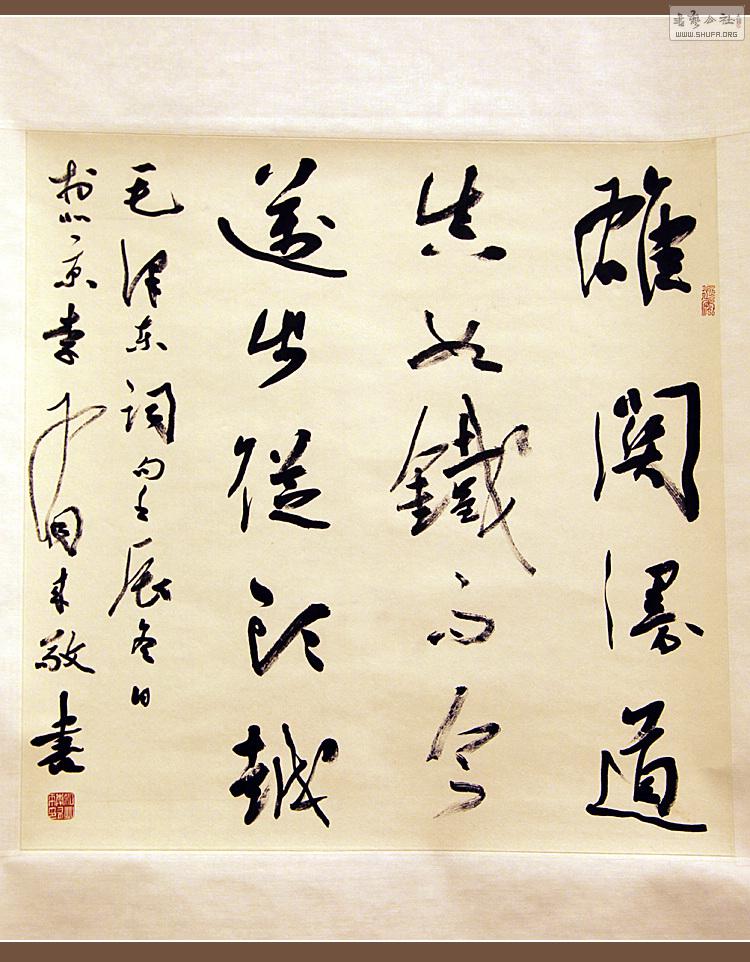 雄關漫道
真如鐵而今
邁步從頭越
毛澤東詞句壬辰冬日
於北京李敬書
書藝公社
WWW.SHUFA.ORG